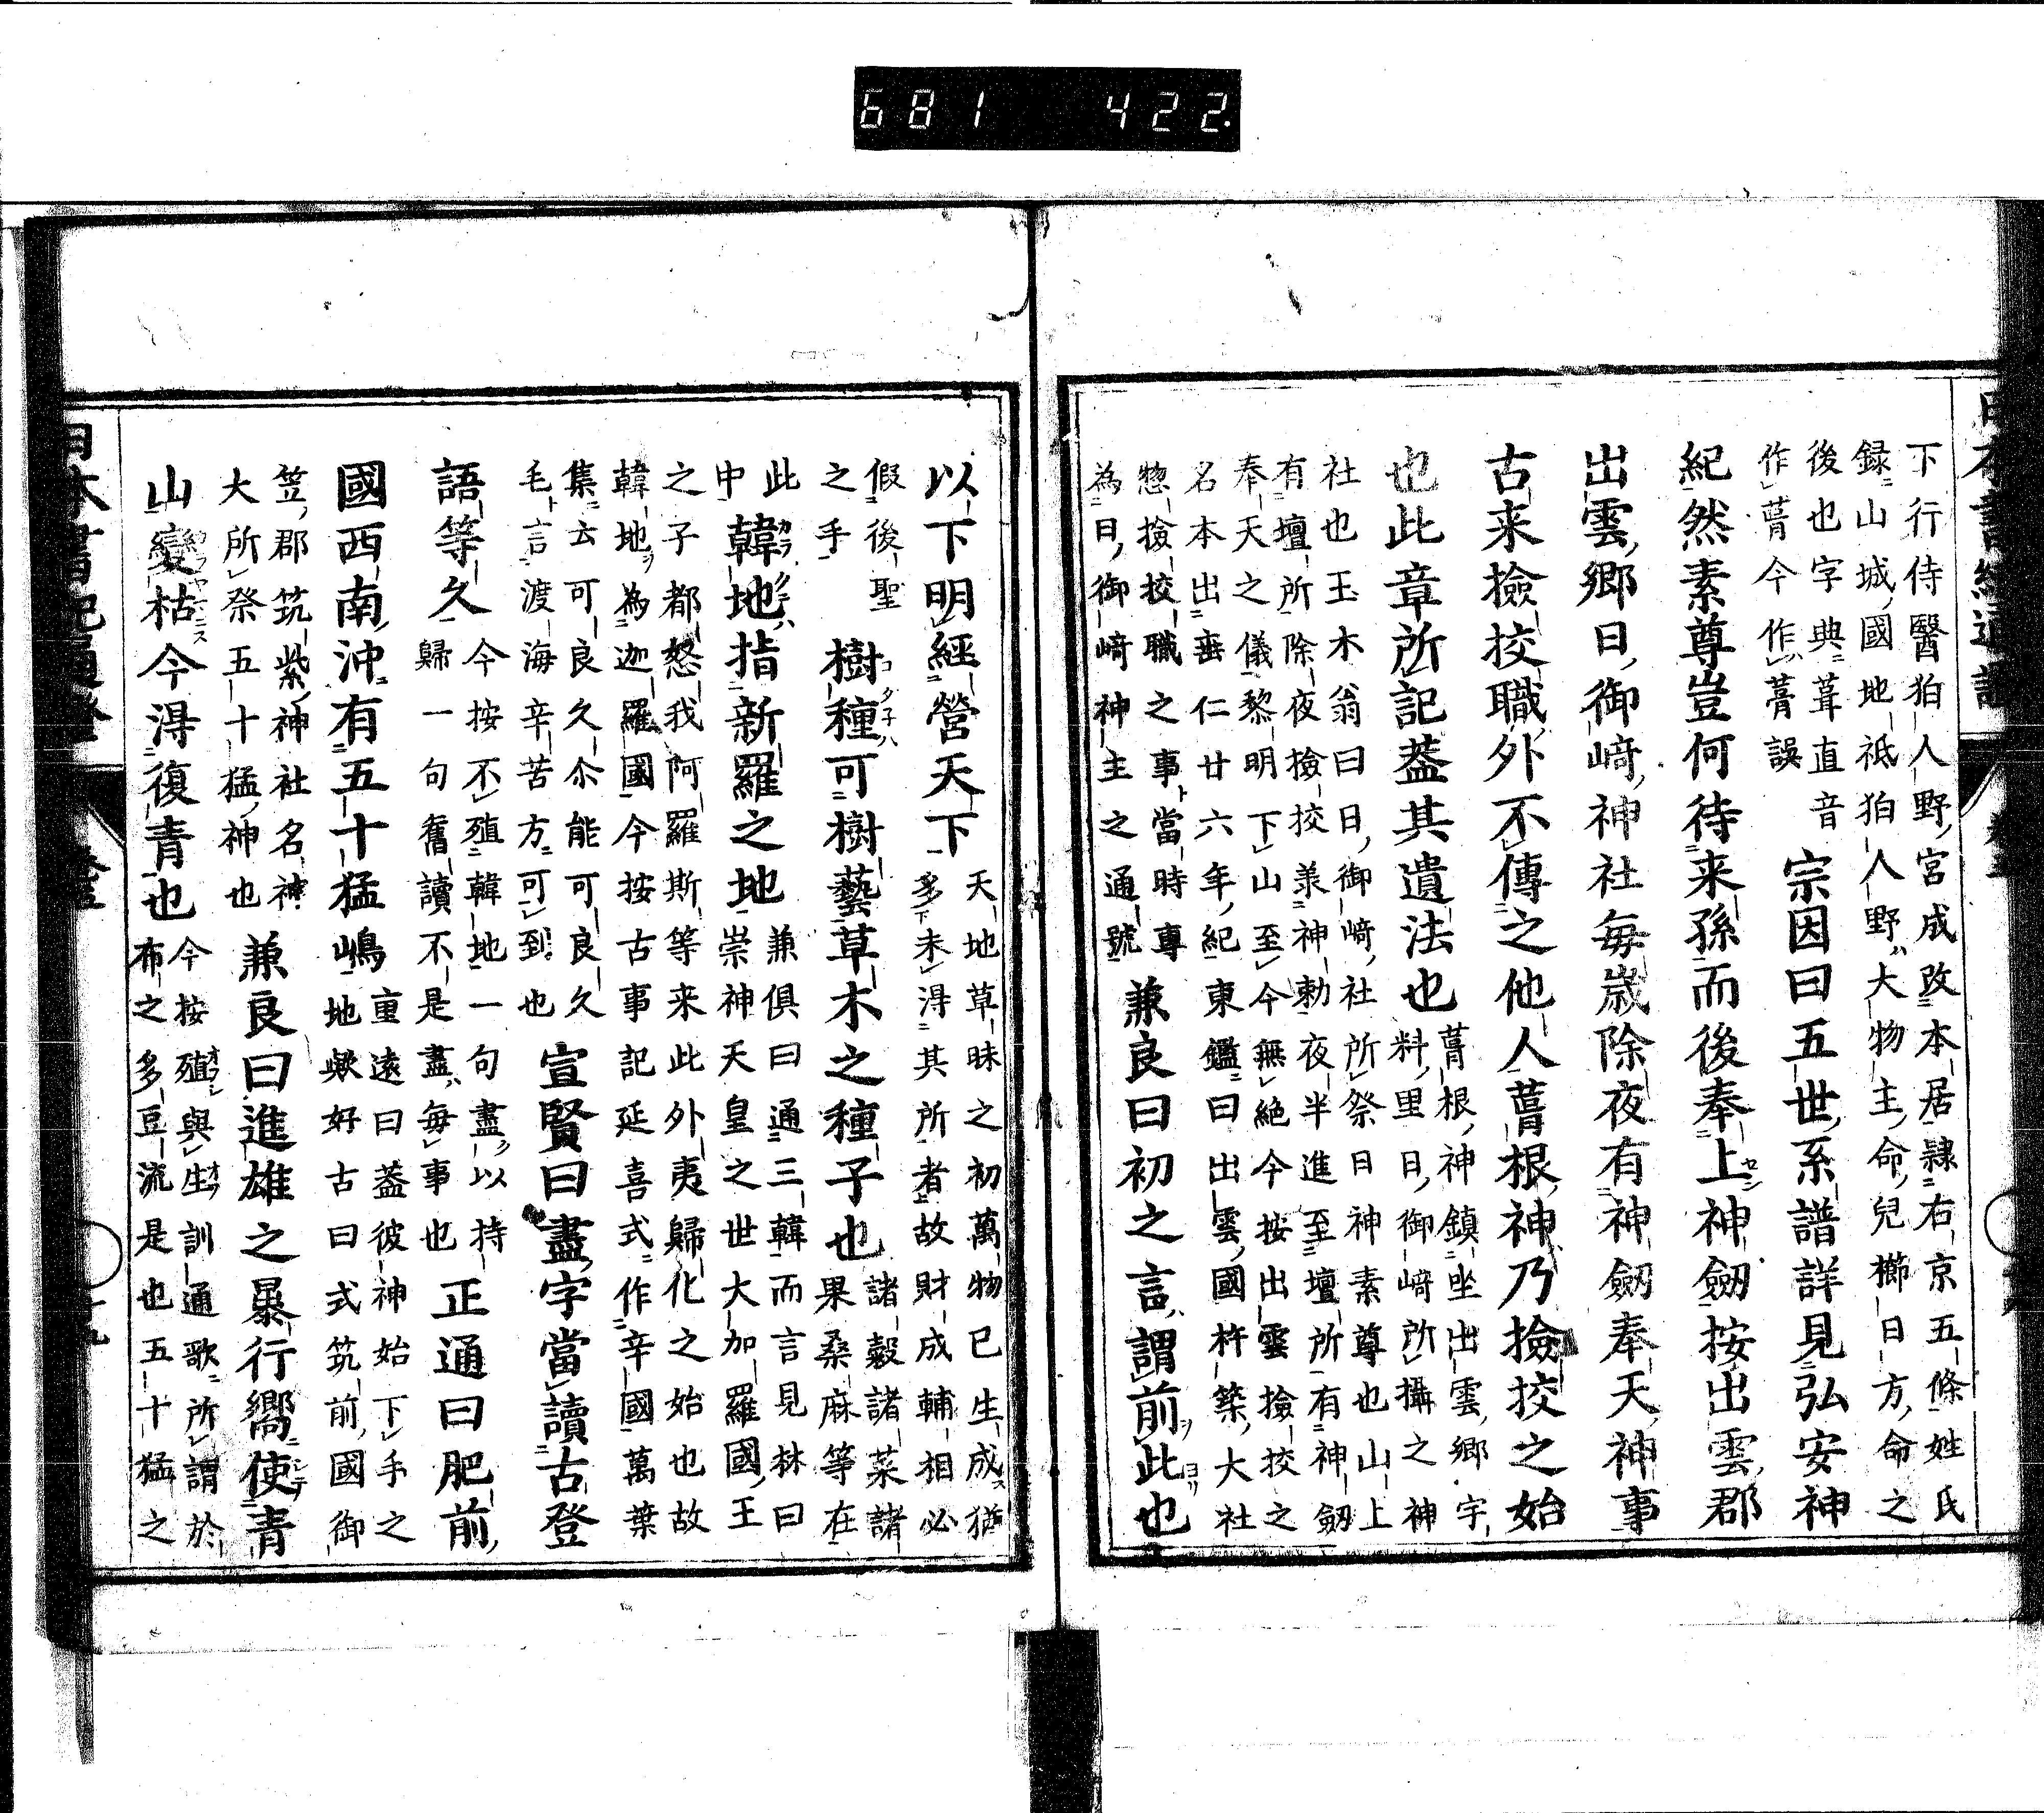 681 422.
下行侍醫狛人野宮成改本居隷右京五條姓氏
録山城國地祇狛人野大物主命兒櫛日方命之
後也字典葺直音
作蓸今作菁誤
宗因曰五世系譜詳見弘安神
紀然素尊豈何待来孫而後奉上神劔按出雲郡
出雲郷日御﨑神社毎歳除夜有神劔奉天神事
古来撿挍職外不傳之他人蓸根神乃撿挍之始
也此章所記葢其遺法也
蓸根神鎮坐出雲郷宇
料里日御﨑所攝之神
社也玉木翁曰日御﨑社所祭日神素尊也山上
有壇所除夜撿挍羕神勅夜半進至壇所有神劔
奉天之儀黎明下山至今無絶今按出雲撿挍之
名本出垂仁廿六年紀東鑑曰出雲國杵築大社
惣撿挍職之事當時專
為日御﨑神主之通號
兼良曰初之言謂前此也
以下明經營天下
天地草昧之初萬物已生成猶
多未淂其所者故財成輔相必
假後聖
之手
樹種可樹藝草木之種子也
諸穀諸菜諸
果桑麻等在
此
中
韓地指新羅之地
兼俱曰通三韓而言見林曰
崇神天皇之世大加羅國王
之子都怒我阿羅斯等来此外夷歸化之始也故
韓地為迦羅國今按古事記延喜式作辛國萬葉
集云可良久尒能可良久
毛言渡海辛苦方可到也
宣賢曰盡字當讀古登
語等久
今按不殖韓地一句盡以持
歸一句奮讀不是盡毎事也
正通曰肥前
國西南沖有五十猛嶋
重遠曰葢彼神始下手之
地歟好古曰式筑前國御
笠郡筑紫神社名神
大所祭五十猛神也
兼良曰進雄之暴行嚮使青
山變枯今淂復青也
今按殖與生訓通歌所謂於
布之多豆流是也五十猛之